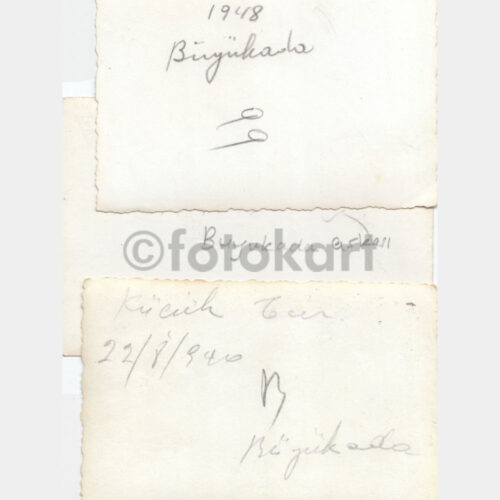 1948
Büyükada
©fotokart
Büyükada
Küçük Tur
22/8/940
Büyükada